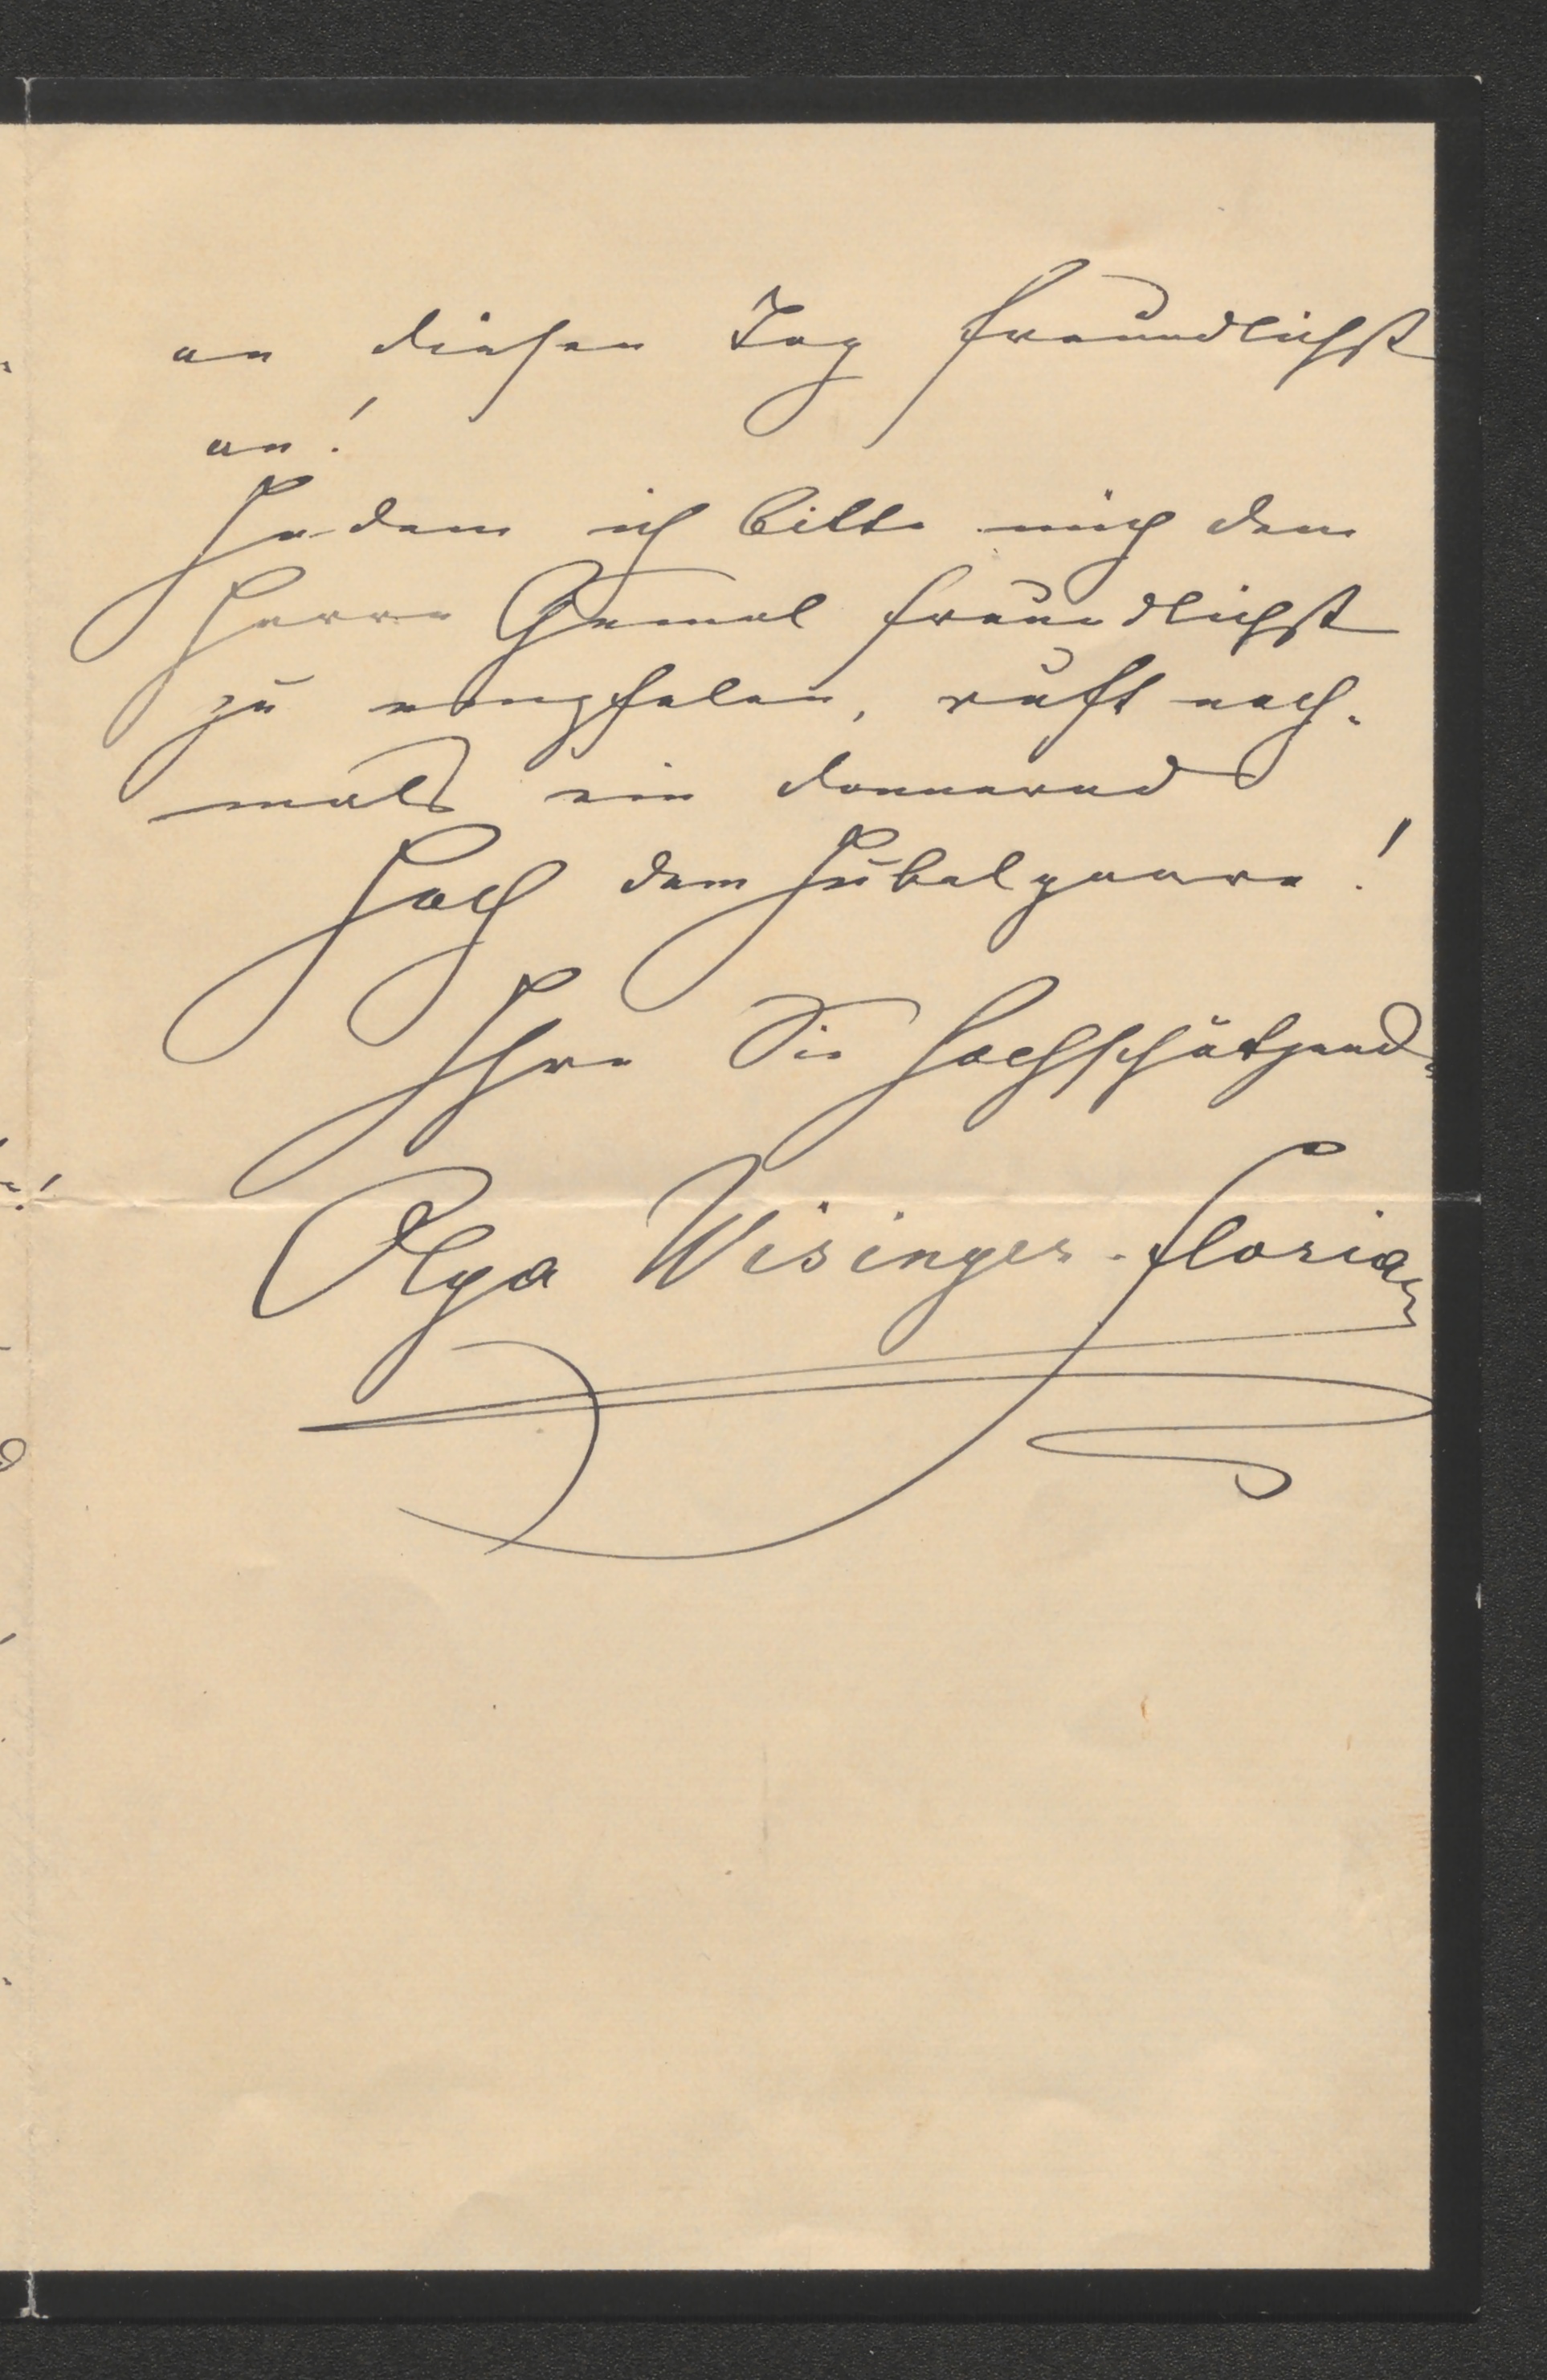 an diesen Tag freundlichst
an!
Indem ich bitte mich dem
Herrn Gemal freundlichst
zu empfelen, ruft noch-
mals ein donnernd
Hoch dem Jubelpaare!
Ihre Sie hochschätzende
Olga Wisinger-Florian